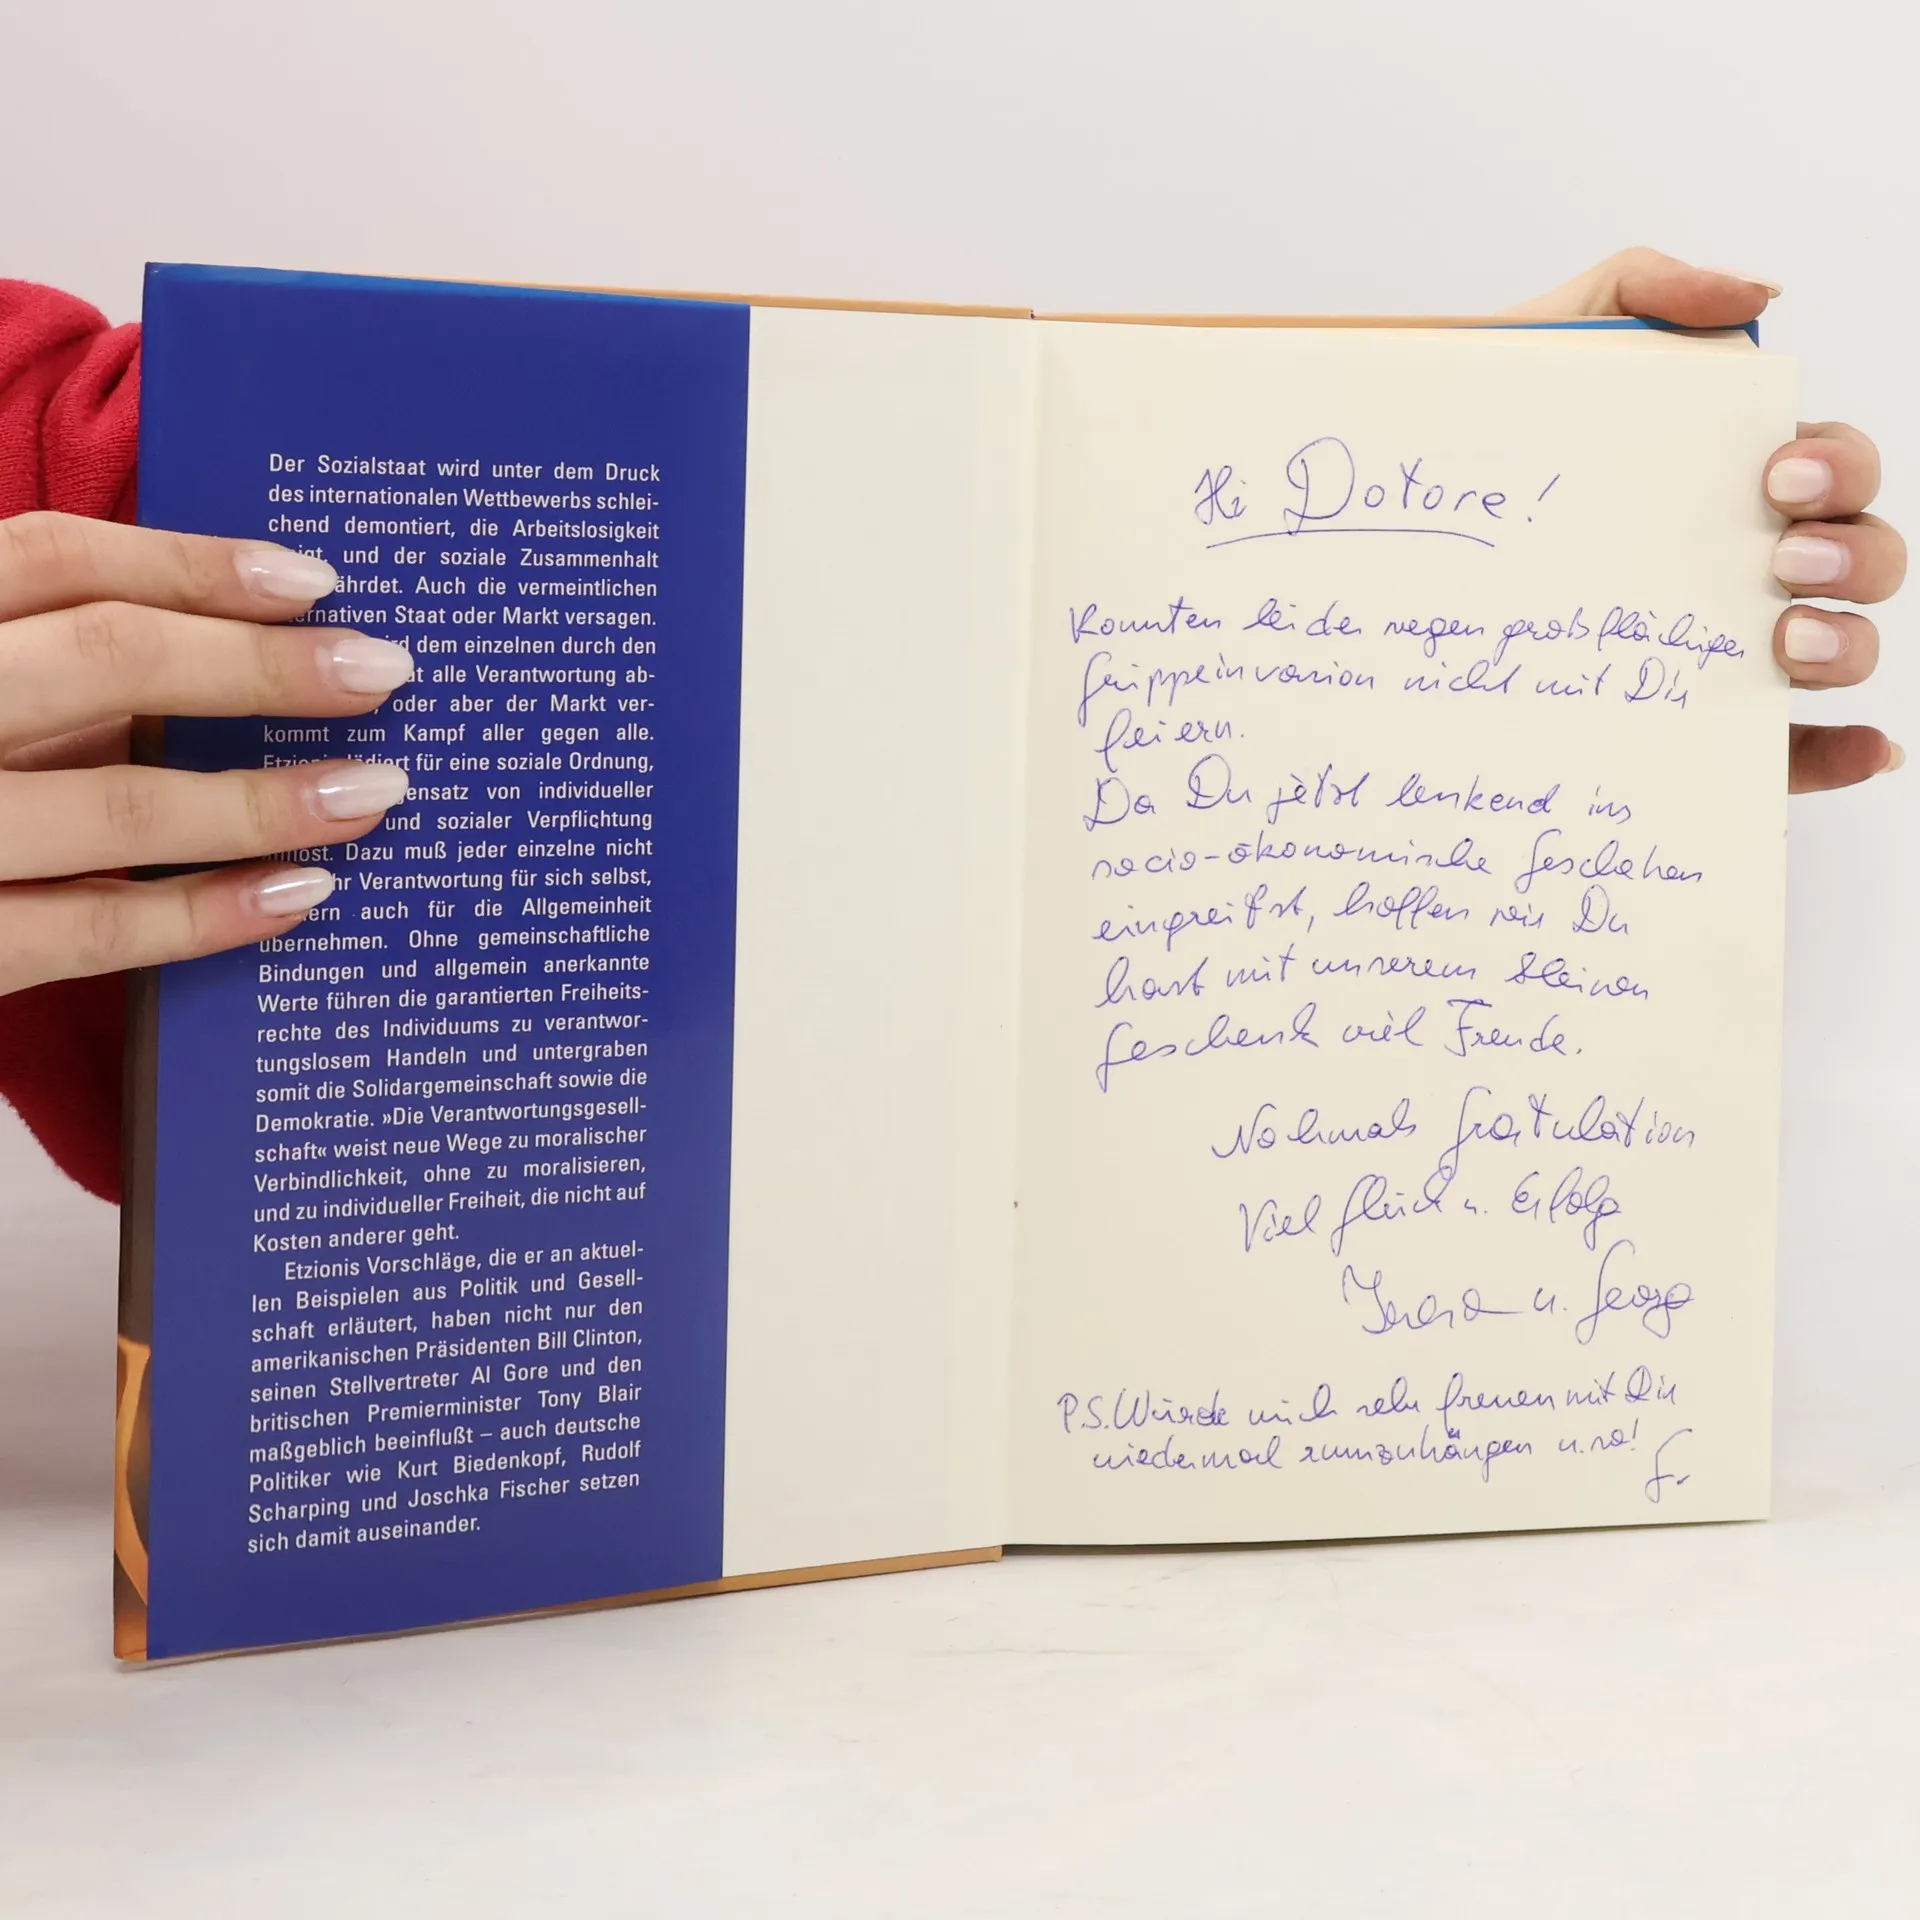 Der Sozialstaat wird unter dem Druck
des internationalen Wettbewerbs schlei-
chend demontiert, die Arbeitslosigkeit
und der soziale Zusammenhalt
ährdet. Auch die vermeintlichen
ernativen Staat oder Markt versagen.
dem einzelnen durch den
at alle Verantwortung ab-
oder aber der Markt ver-
kommt zum Kampf aller gegen alle.
Etzioni plädiert für eine soziale Ordnung,
gensatz von individueller
und sozialer Verpflichtung
Dazu muß jeder einzelne nicht
hr Verantwortung für sich selbst,
ern auch für die Allgemeinheit
übernehmen. Ohne gemeinschaftliche
Bindungen und allgemein anerkannte
Werte führen die garantierten Freiheits-
rechte des Individuums zu verantwor-
tungslosem Handeln und untergraben
somit die Solidargemeinschaft sowie die
Demokratie. »Die Verantwortungsgesell-
schaft« weist neue Wege zu moralischer
Verbindlichkeit, ohne zu moralisieren,
und zu individueller Freiheit, die nicht auf
Kosten anderer geht.
Etzionis Vorschläge, die er an aktuel-
len Beispielen aus Politik und Gesell-
schaft erläutert, haben nicht nur den
amerikanischen Präsidenten Bill Clinton,
seinen Stellvertreter Al Gore und den
britischen Premierminister Tony Blair
maßgeblich beeinflußt – auch deutsche
Politiker wie Kurt Biedenkopf, Rudolf
Scharping und Joschka Fischer setzen
sich damit auseinander.
Hi Dotore!
Konnten leider wegen großflächiger
Grippeinvasion nicht mit Dir
feiern.
Da Du jetzt lenkend ins
socio-ökonomische Geschehen
eingreifst, hoffen wir Du
hast mit unserem kleinen
Geschenk viel Freude.
Nochmals Gratulation
Viel Glück u. Erfolg
u. Georg
P.S. Würde mich sehr freuen mit Dir
wiedermal rumzuhängen u.so!
G.